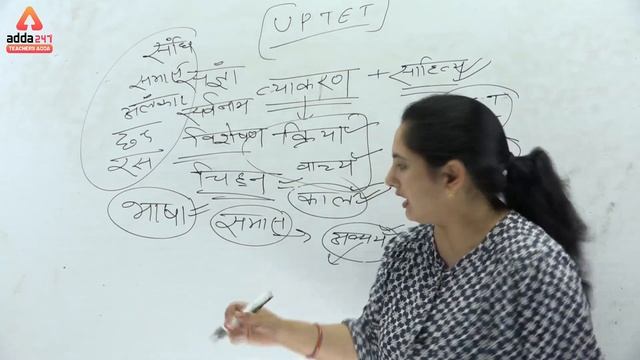 adda247
TEACHERS ADDA
UPTET
संधि
समास संज्ञा व्याकरण + साहित्य
अलंकार सर्वनाम
छंद विशेषण क्रिया
रस चिह्न वाच्य
काल
भाषा समास अव्यय